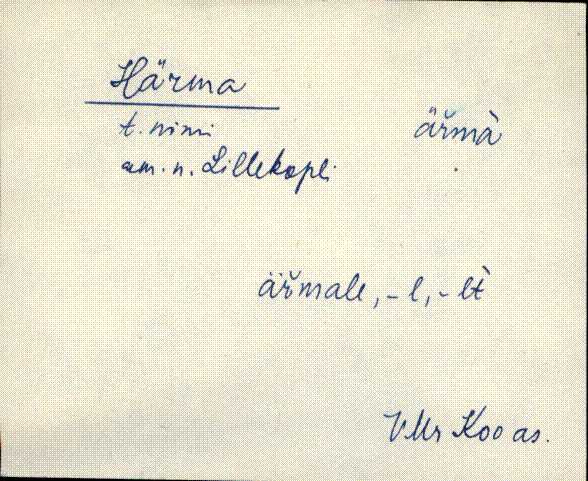 Härma
t. nimi ärmà
am. n. Lillekopli
äřmale, - l, - lt̀
VMr Koo as.